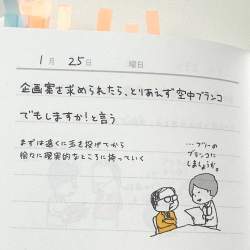 1月 25日 曜日
企画案を求められたら、とりあえず空中ブランコ
でもしますか!と言う
まずは遠くに玉を投げてから
徐々に現実的なところに持っていく
…フツーの
ブランコに
しましょうか。